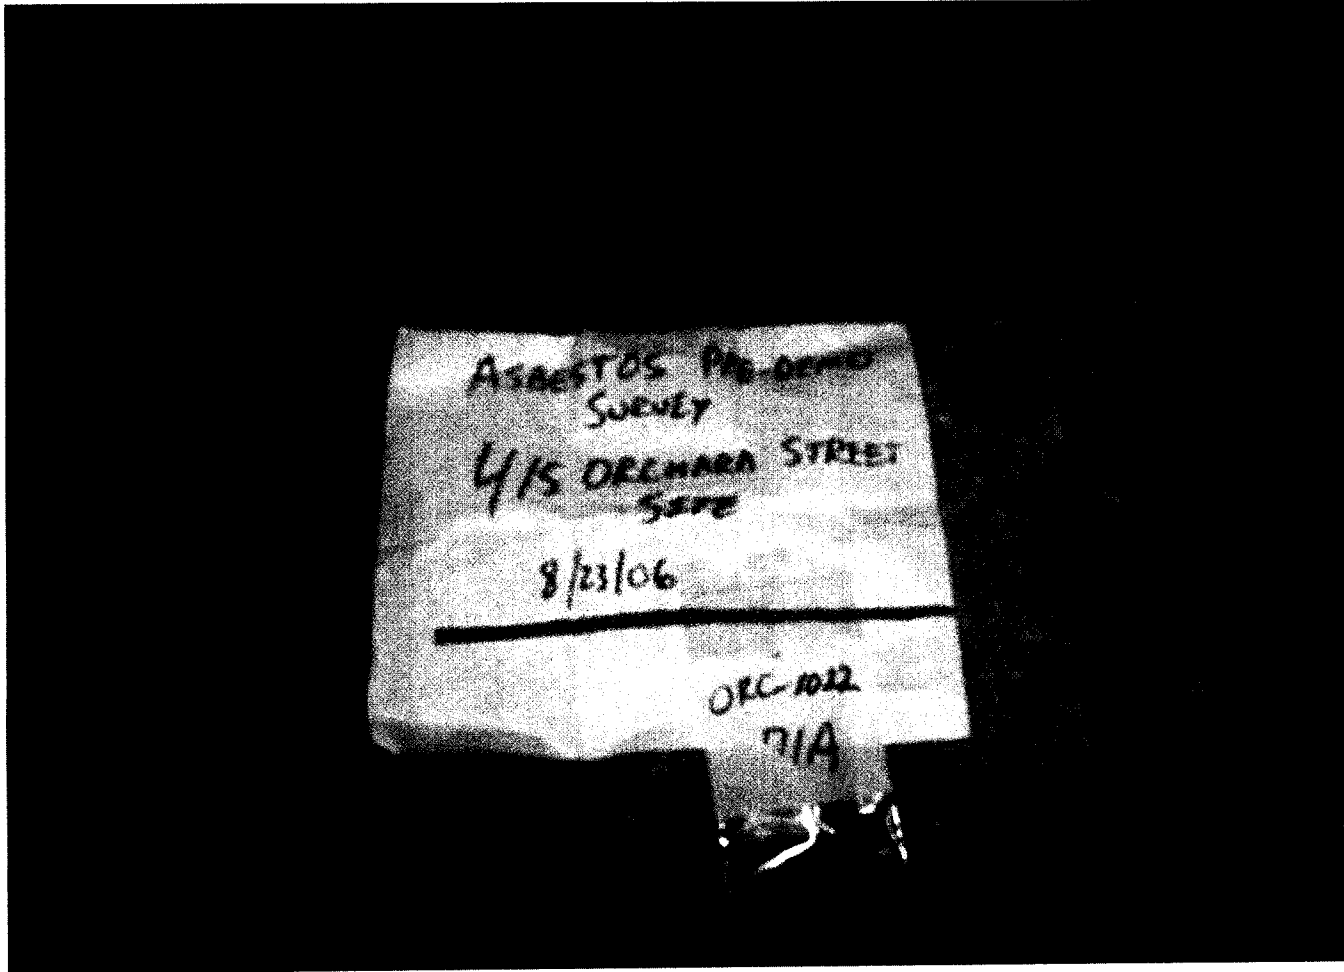 ASBESTOS PRE-DEMO
SURVEY
415 ORCHARD STREET
SITE
8/23/06
ORC-1022
71A